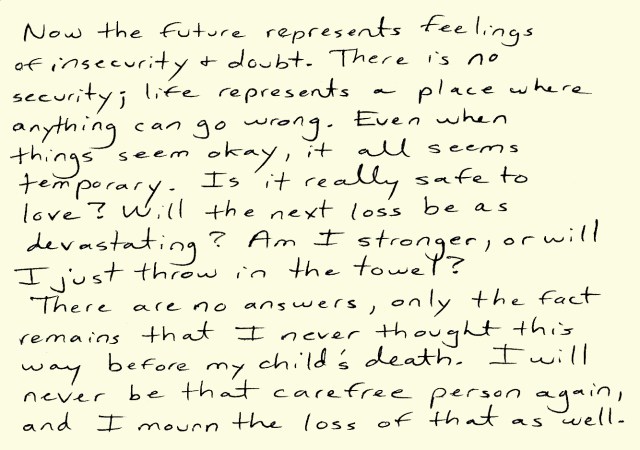 Now the future represents feelings
of insecurity + doubt. There is no
security; life represents a place where
anything can go wrong. Even when
things seem okay, it all seems
temporary. Is it really safe to
love? Will the next loss be as
devastating? Am I stronger, or will
I just throw in the towel?
There are no answers, only the fact
remains that I never thought this
way before my child's death. I will
never be that carefree person again,
and I mourn the loss of that as well.